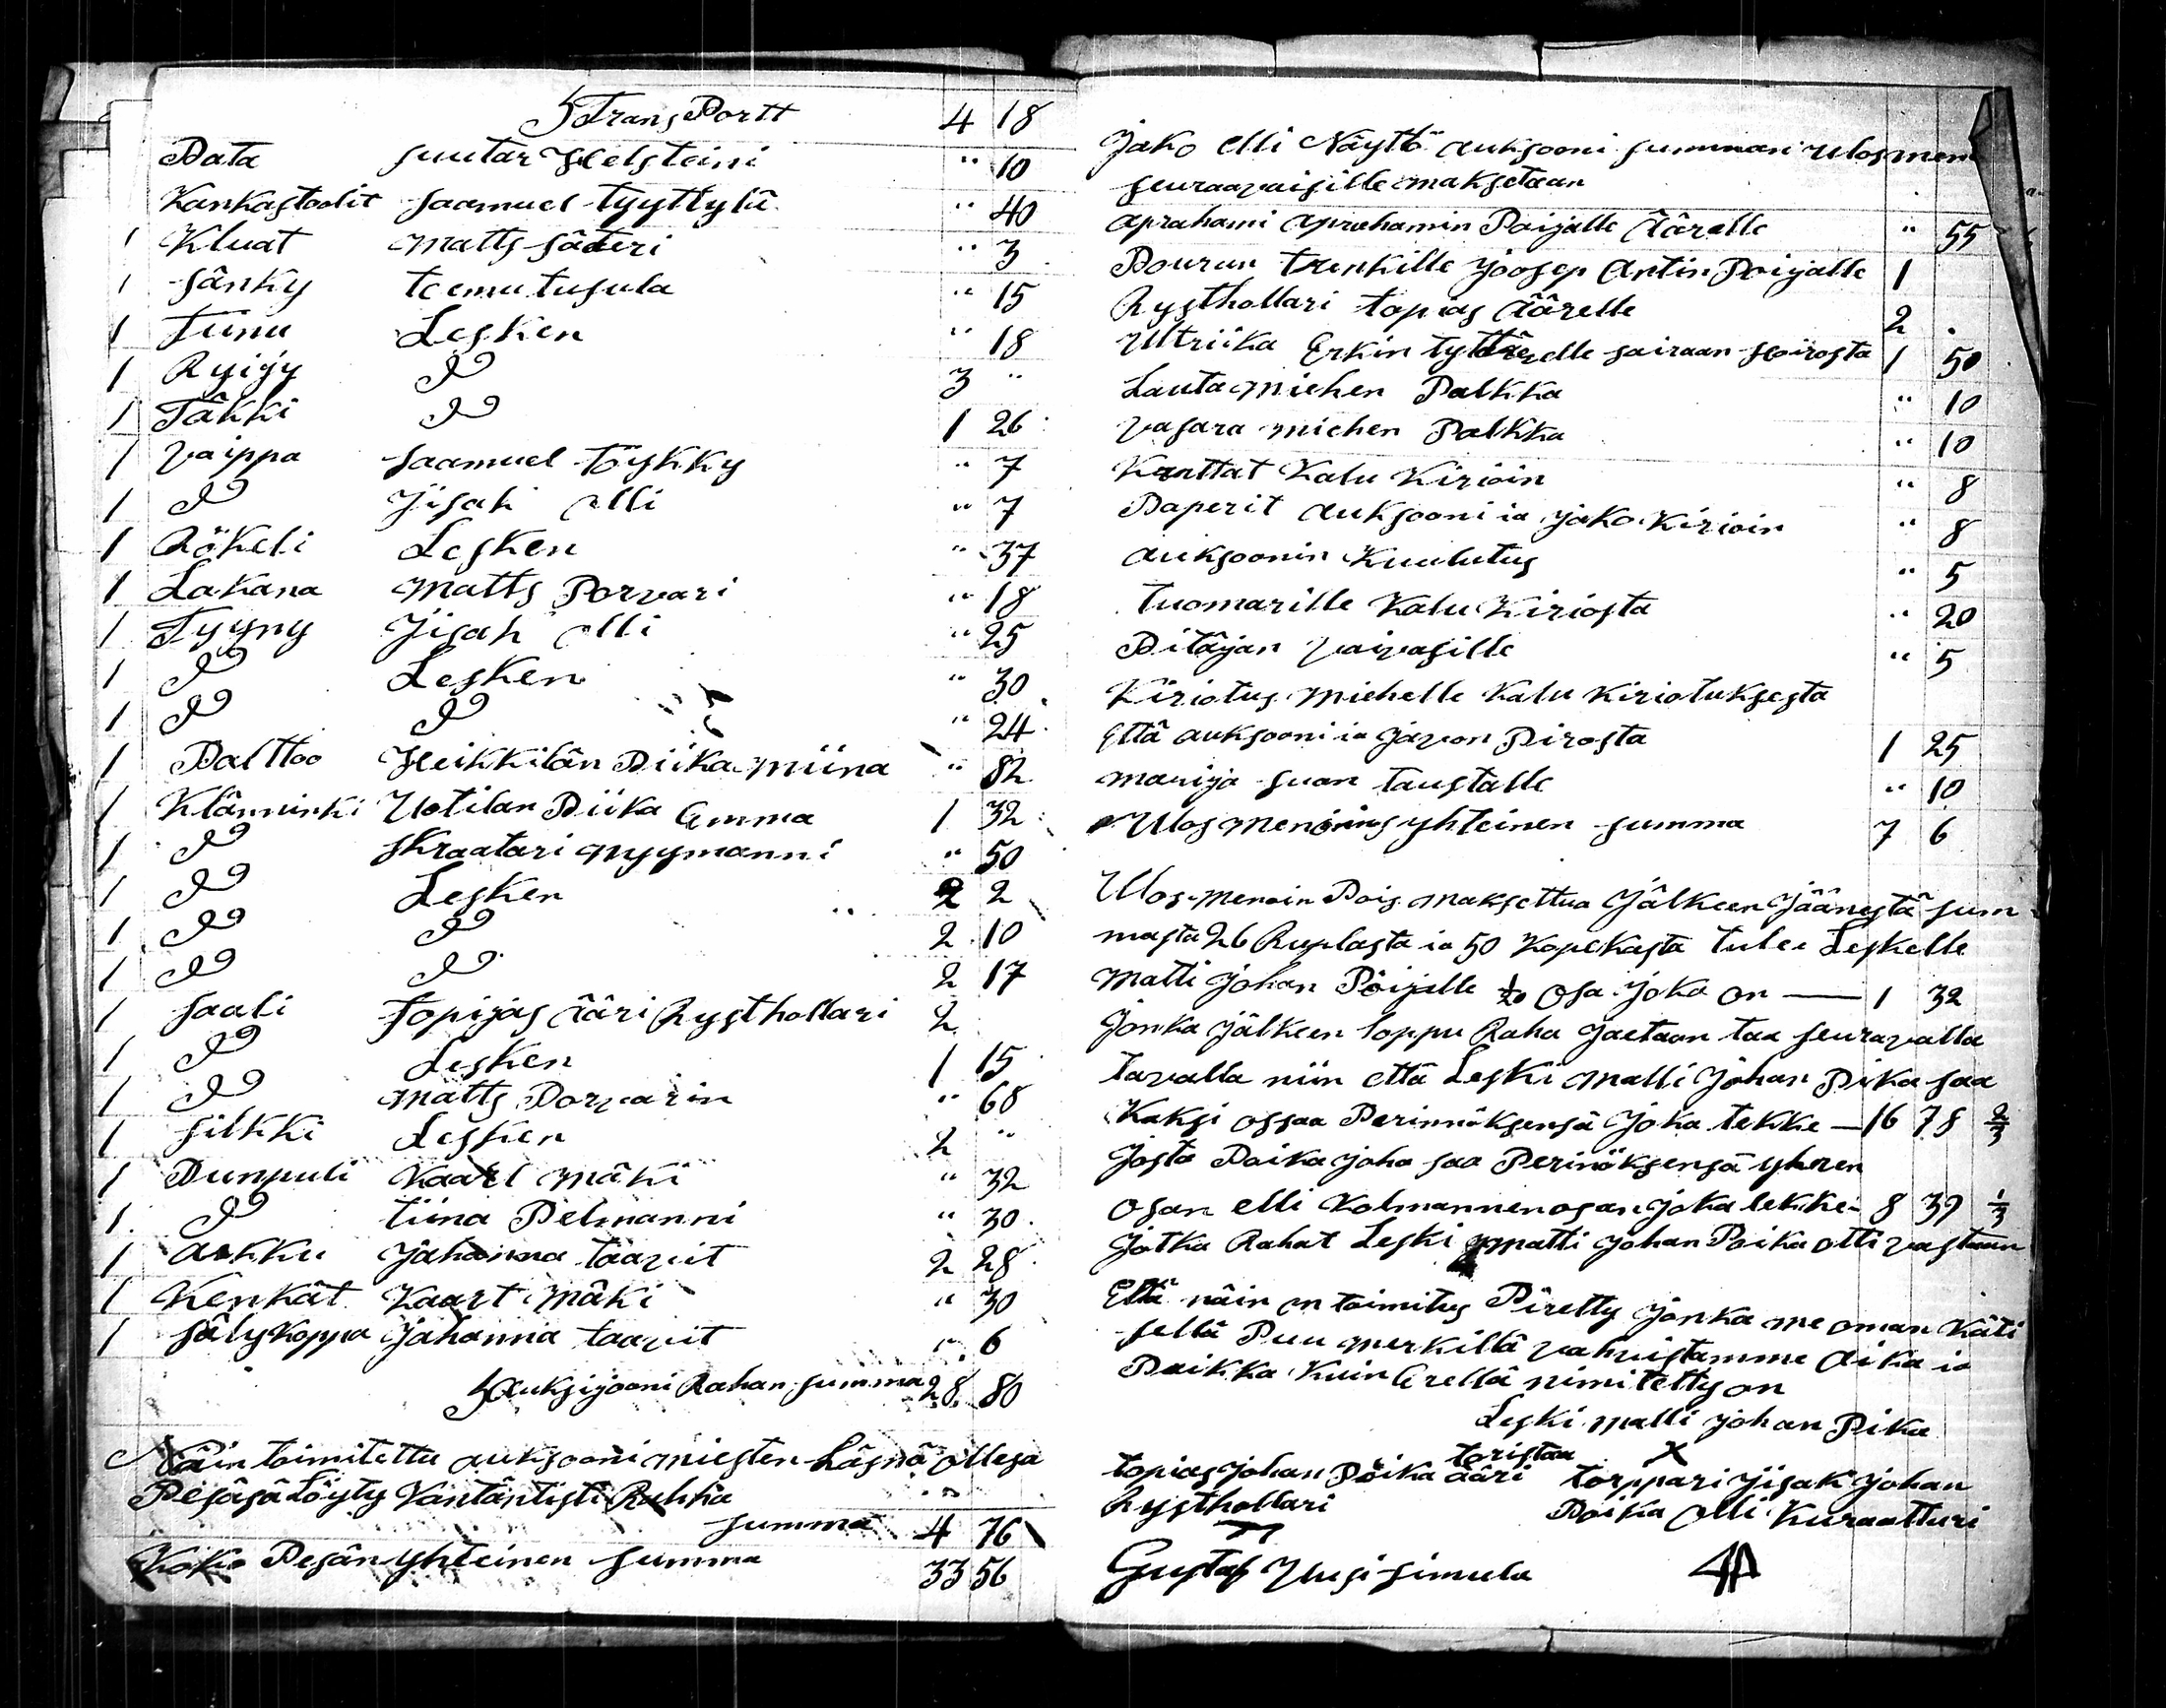 TransPortt 4 18
Pata suutar Helsteini " 10
Kankastoolit saamuel tyyttylä " 40
1 Kluat matts säteri " 3
1 sänky teemu tusula " 15
1 Tiinu Lesken " 18
1 Ryigy DO 3 "
1 Täkki DO 1 26
1 vaippa saamuel töykky " 7
1 DO Jisak olli " 7
1 Rökeli Lesken " 37
1 Lakana matts Porvari " 18
1 Tyyny Jisak olli " 25
1 DO Lesken " 30
1 DO DO " 24
1 Palttoo Heikkilän Piika miina " 82
1 Klänninki Uotilan Piika Emma 1 32
1 DO skraatari nyymanni " 50
1 DO Lesken 2 2
1 DO DO 2 10
1 DO DO 2 17
1 saali Topijas ääri Rysthollari 2
1 DO Lesken 1 15
1 DO matts Porvarin " 68
1 silkki Lesken 2 "
1 Dunpuli Kaarl mäki " 32
1 DO tiina Pelmanni " 30
1 arkku Johanna taavit 2 28
1 Kenkät Kaart mäki " 30
1 sälykoppa Johanna taavit " 6
auksijooni Rahan summa 28 80
Näin toimitettu auksooni miesten Läsnä ollesa
Pesäsä Löyty Vantäntisti Rahha
summa 4 76
Koko Pesän yhteinen summa 33 56
Jako elli Näyttö auksooni summan Ulosmen
seuraavaisille maksetaan
aprahami aprahamin Poijalle Äärelle " 55
Pourun trenkille Joosep Antin Poijalle 1
Rysthollari topias Äärelle 2 .
Ulriika Erkin tyttärelle sairaan hoirosta 1 50
Lautamiehen Palkka " 10
vasara miehen Palkka " 10
Karttat Kalu Kirioin " 8
Paperit auksooni ia jako Kirioin " 8
auksoonin Kuulutus " 5
tuomarille Kalu Kiriosta " 20
Pitäjän vaivasille " 5
Kiriotus miehelle Kalu Kiriotuksesta
Että auksooni ia javon Pirosta 1 25
maurija suan taustalle " 10
Ulos menoning yhteinen summa 7 6
Ulos menoin Pois maksettua Jälkeen Jäänestä sum
masta 26 Ruplasta ia 50 Kopekasta tulee Leskelle
Matti Johan Pöijalle 1/20 osa joka on — 1 32
Jonka Jälkeen loppu Raha Jaetaan taa seuravalla
tavalla niin että Leski Malli Johan Pika saa
Kaksi ossaa Perinnöksensä Joka tekke — 16 78 2/3
Josta Poika joha saa Perinöksensä yhren
Osan elli Kolmannen osan joka tekke - 8 39 1/3
Jotka Rahat Leski matti Johan Poika otti vastaan
Että näin on toimitus Piretty Jonka me oman käti
sellä Puu merkillä vahvistamme Aika ia
Paikka Kuin Erellä nimitetty on
Leski malli Johan Pika
toristaa X
topias Johan Pöika ääri torppari Jisak Johan
Rysthollari Poika olli Kuraatturi
Gustaf Uusi simula